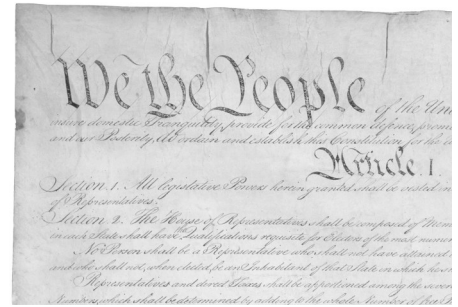 We the People of the Un
insure domestic Tranquility, provide for the common defence, prom
and our Posterity, do ordain and establish this Constitution for the
Article. I.
Section. 1. All legislative Powers herein granted shall be vested in
of Representatives.
Section. 2. The House of Representatives shall be composed of Mem
in each State shall have Qualifications requisite for Electors of the most numer
No Person shall be a Representative who shall not have attained
and who shall not, when elected, be an Inhabitant of that State in which he
Representatives and direct Taxes shall be apportioned among the seve
Numbers, which shall be determined by adding to the whole Number of